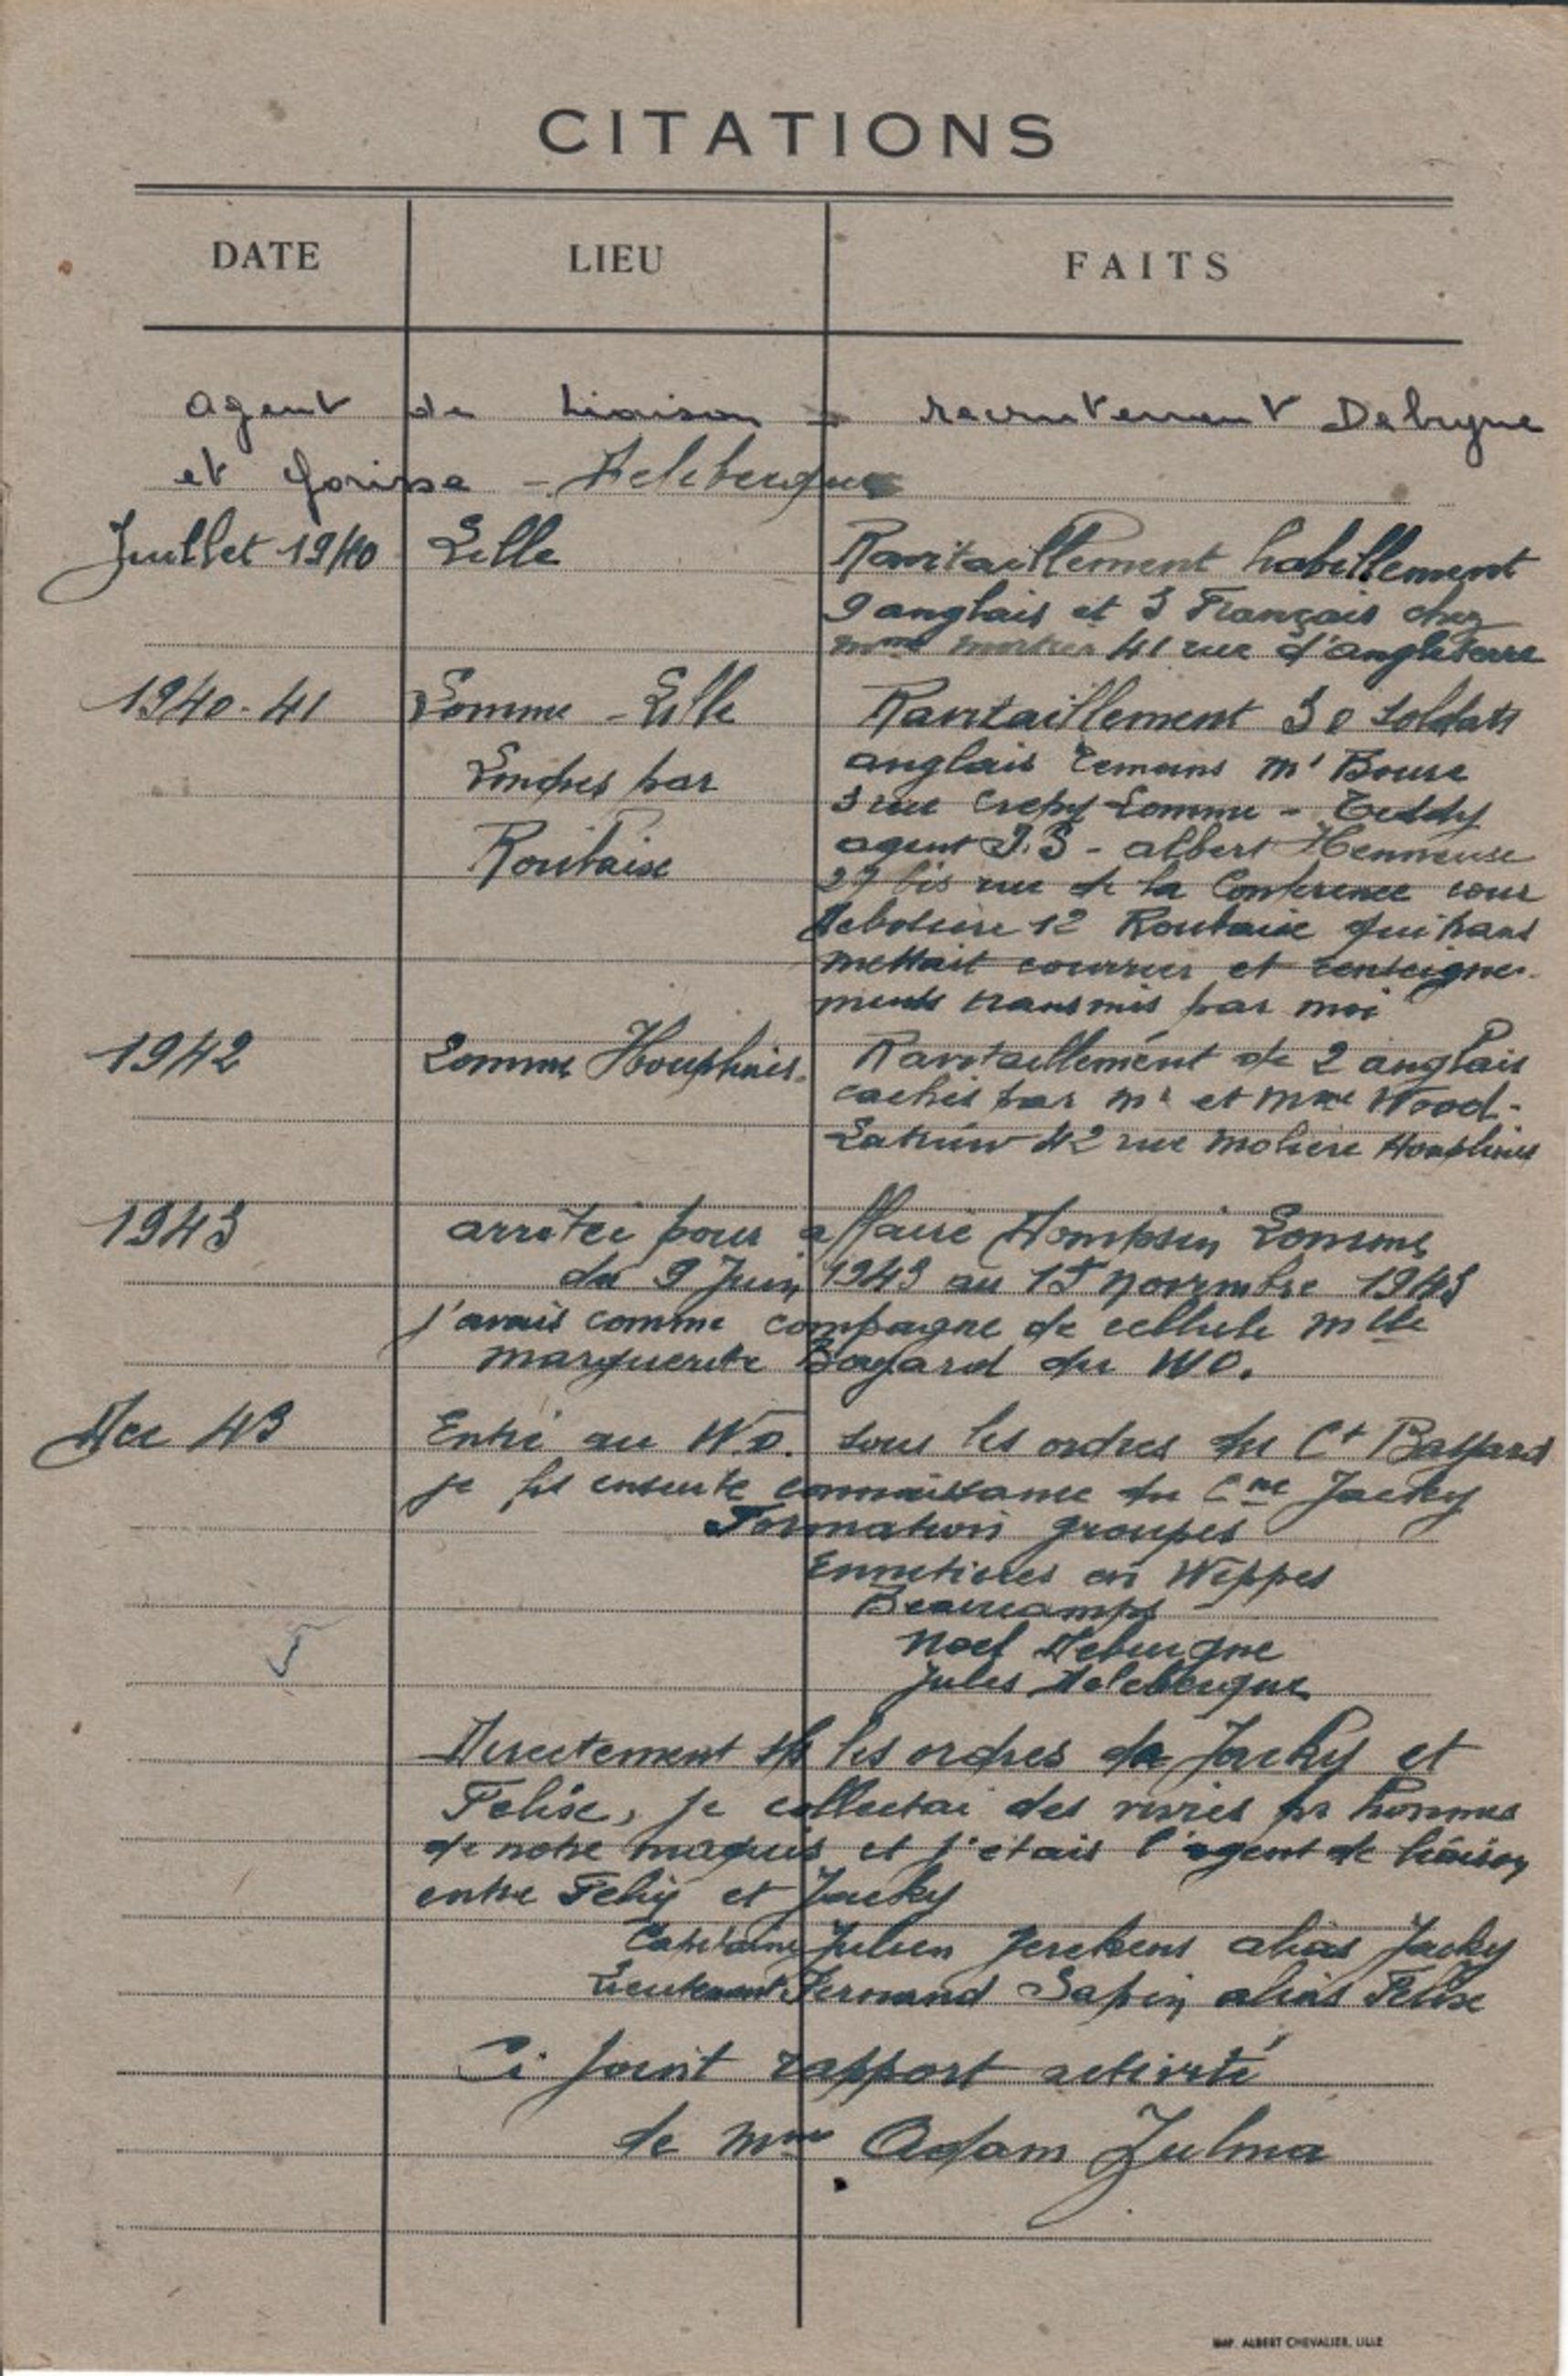 CITATIONS
DATE LIEU FAITS
agent de liaison - recrutement Debuyne
et forisse - Delebecque
Juillet 1940 Lille Ravitaillement habillement
9 anglais et 3 Français chez
mme 41 rue d'angleterre
1940-41 Lomme - Lille Ravitaillement 30 soldats
Londres par anglais temoins mr Bouse
3 rue Crepy Lomme - Teddy
Roubaise agent I.S - albert Henneuse
27 bis rue de la Conference cour
12 Roubaix qui trans
mettait courrier et renseigne-
ments transmis par moi
1942 Lomme Houplines. Ravitaillement de 2 anglais
cachés par mr et mme Wood-
42 rue moliere Houplines
1943 arrêtée pour affaire Lomme
du 9 Juin 1943 au 15 novembre 1943
j'avais comme compagne de cellule mlle
marguerite Bayard du WO.
Dec 43 Entré au W.O. sous les ordres du Ct Bayard
je fis ensuite connaissance du Cne Jacky
Formation groupes
Ennetieres en Weppes
Beaucamps
Noel Debuigne
Jules Delebecque
Directement s/s les ordres de Jacky et
Felix, je collectai des vivres pr hommes
de notre maquis et j'étais l'agent de liaison
entre Felix et Jacky
Capitaine Julien Jerekens alias Jacky
Lieutenant Fernand Sapin alias Felix
Ci joint rapport activité
de mme Adam Zulma
IMP. ALBERT CHEVALIER, LILLE